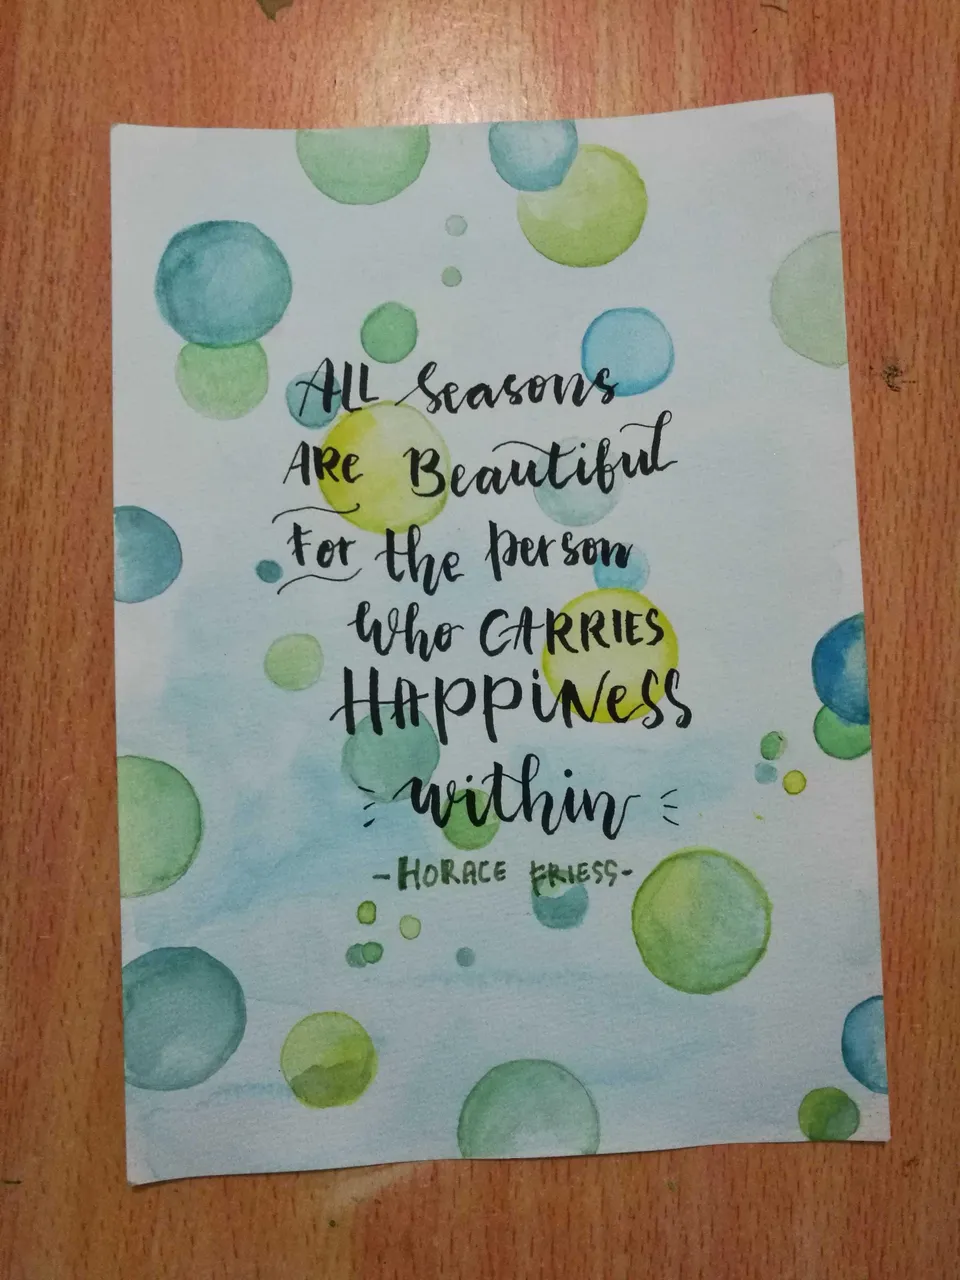 ALL Seasons
ARe Beautiful
For the person
Who CARRIES
HAppiNeSS
within
-HORACE FRIESS-